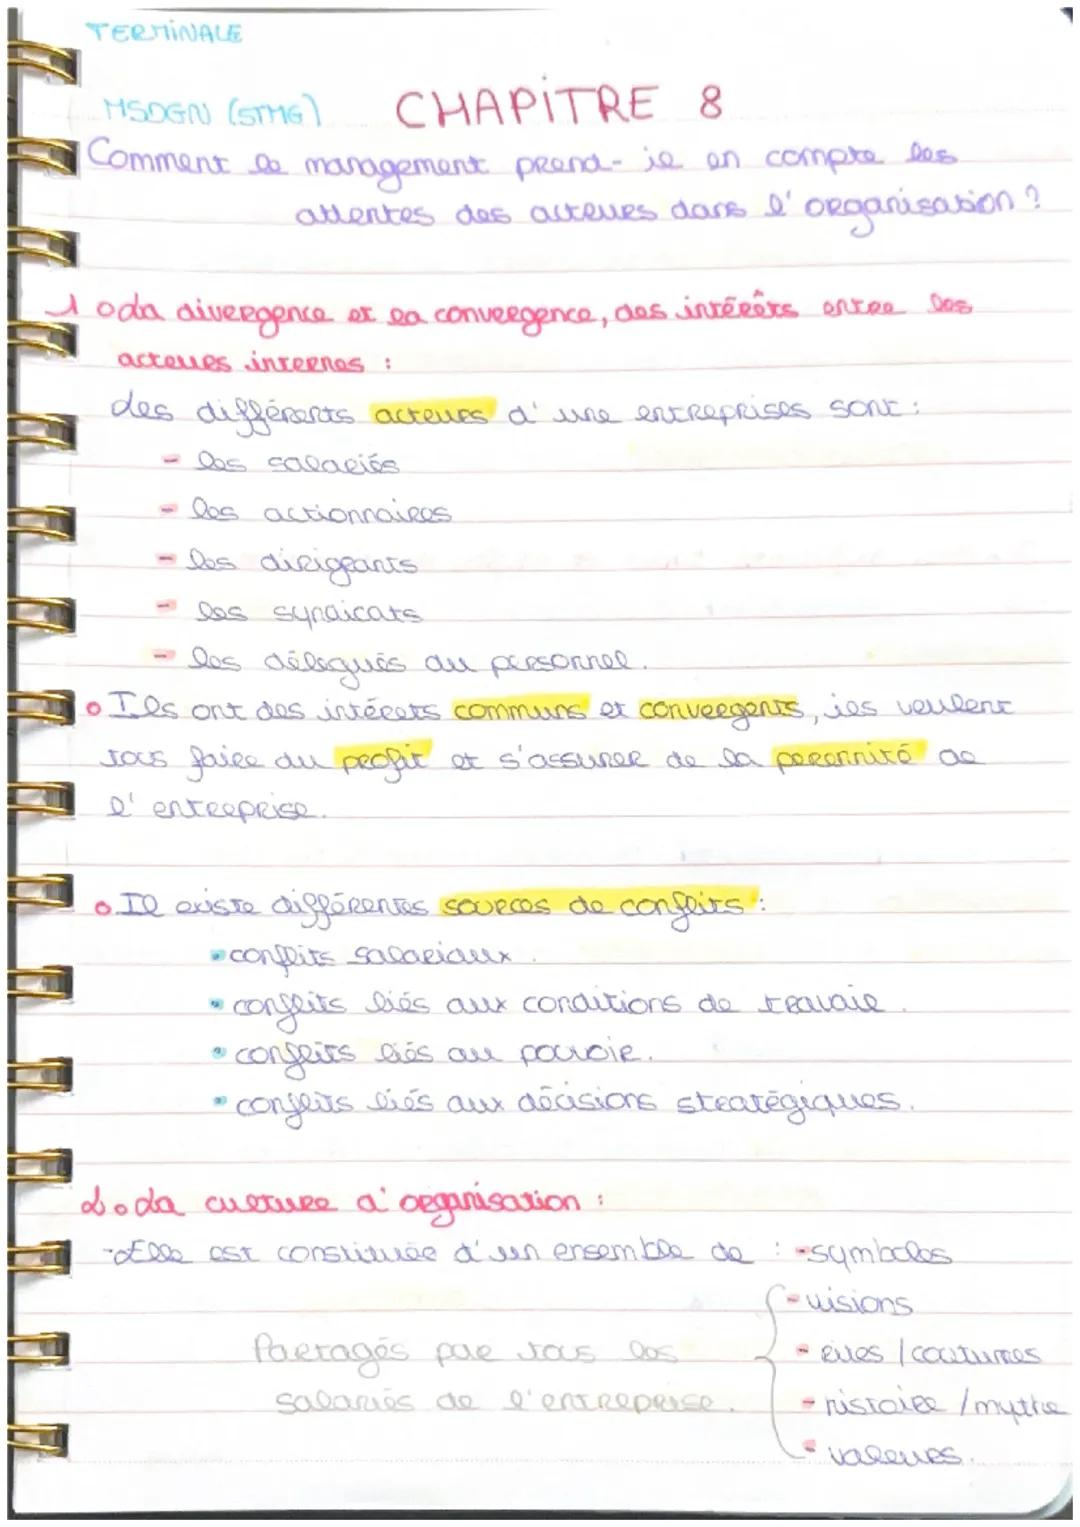 TERMINALE
MSDGN (STMG) CHAPITRE 8
Comment le management prend-il en compte les
attentes des acteurs dans l'organisation ?
1 o La divergence et la convergence, des intérêts entre les
acteurs internes :
Les différents acteurs d'une entreprises sont :
- les salariés
- les actionnaires
- les dirigeants
- les syndicats
- les délégués du personnel.
o Ils ont des intérets communs et convergents, ils veulent
tous faire du profit et s'assurer de la perennité de
l'entreprise.
o Il existe différentes sources de conflits :
• conflits salariaux.
• conflits liés aux conditions de travail.
• conflits liés au pouvoir.
• conflits liés aux décisions stratégiques.
2 o La culture d'organisation :
- Elle est constituée d'un ensemble de : - symboles
- visions
Partagés par tous les - rites / coutumes
salariés de l'entreprise. - histoire / mythe
- valeurs.